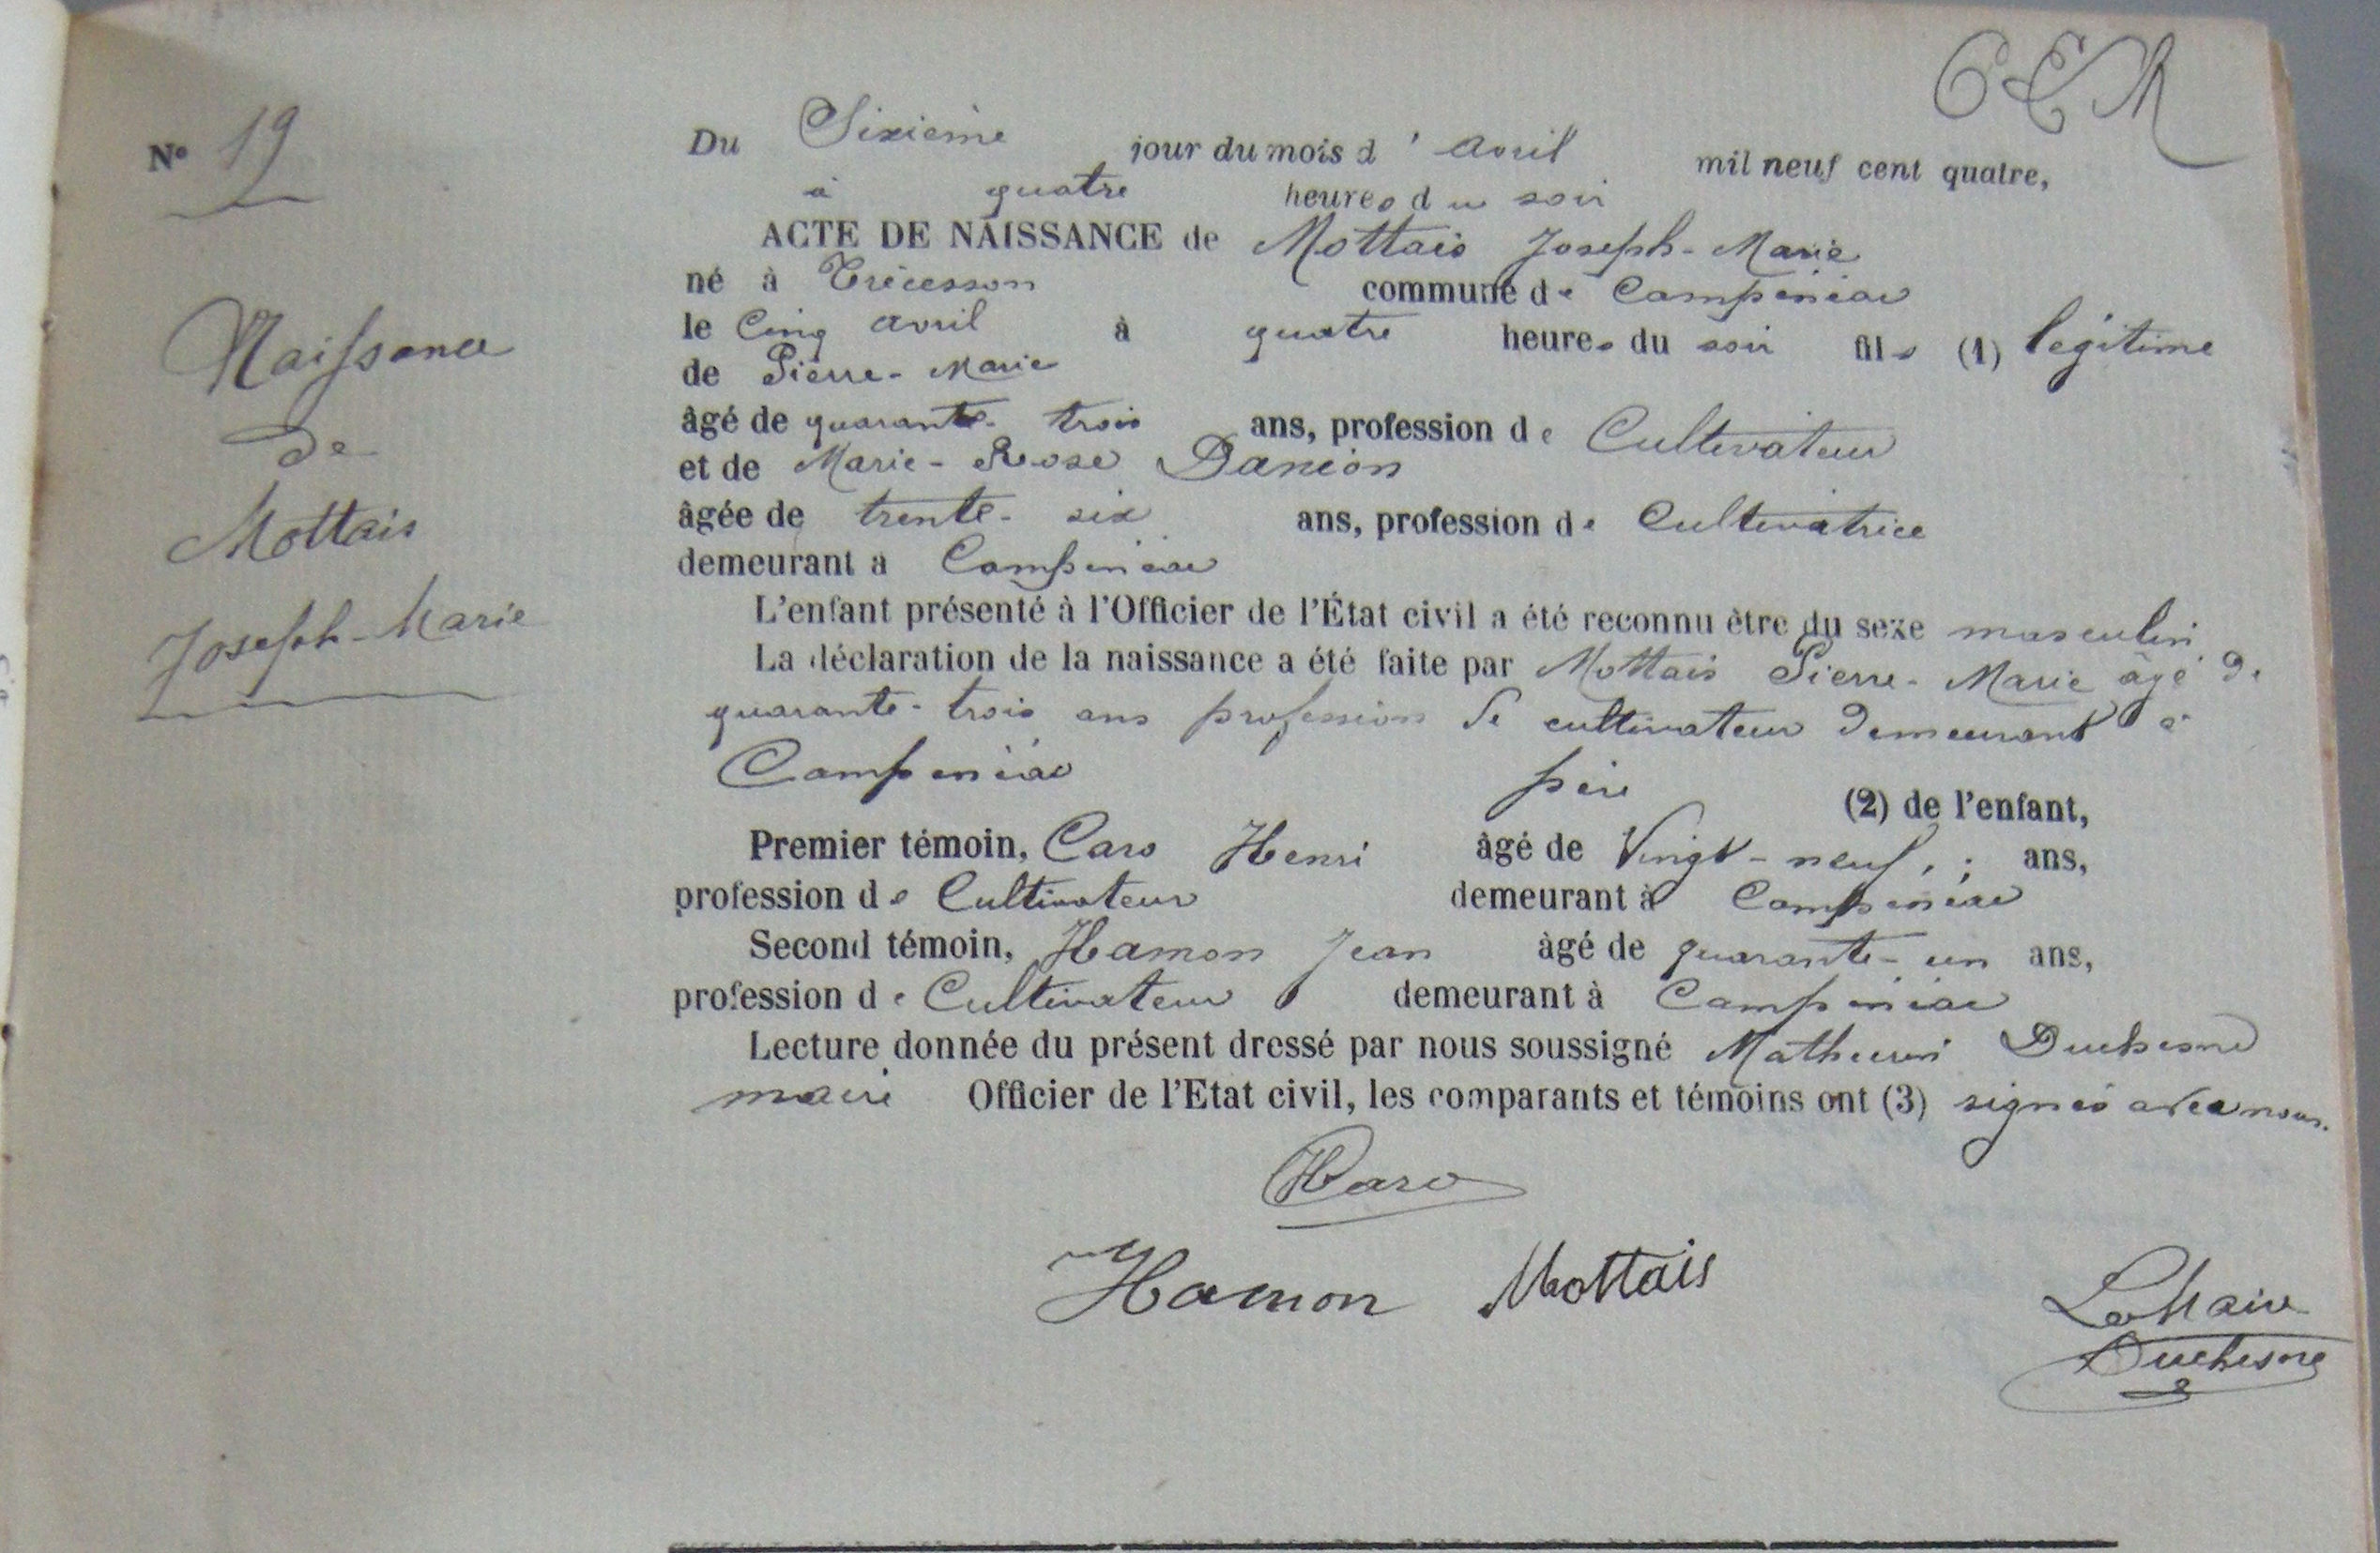 CEM
N° 19
Naissance
de
Mottais
Joseph-Marie
Du Sixième jour du mois d'avril mil neuf cent quatre,
à quatre heures du soir
ACTE DE NAISSANCE de Mottais Joseph-Marie
né à Trécesson commune de Campénéac
le Cinq avril à quatre heures du soir fils (1) légitime
de Pierre-Marie
âgé de quarante-trois ans, profession de Cultivateur
et de Marie-Rose Danion
âgée de trente-six ans, profession de Cultivatrice
demeurant à Campénéac
L'enfant présenté à l'Officier de l'État civil a été reconnu être du sexe masculin
La déclaration de la naissance a été faite par Mottais Pierre-Marie âgé de
quarante-trois ans profession de cultivateur demeurant à
Campénéac père (2) de l'enfant,
Premier témoin, Caro Henri âgé de Vingt-neuf ans,
profession de Cultivateur demeurant à Campénéac
Second témoin, Hamon Jean âgé de quarante-un ans,
profession de Cultivateur demeurant à Campénéac
Lecture donnée du présent dressé par nous soussigné Mathurin Duchesne
maire Officier de l'Etat civil, les comparants et témoins ont (3) signés avec nous.
HCaro
Hamon Mottais
Le Maire
Duchesne